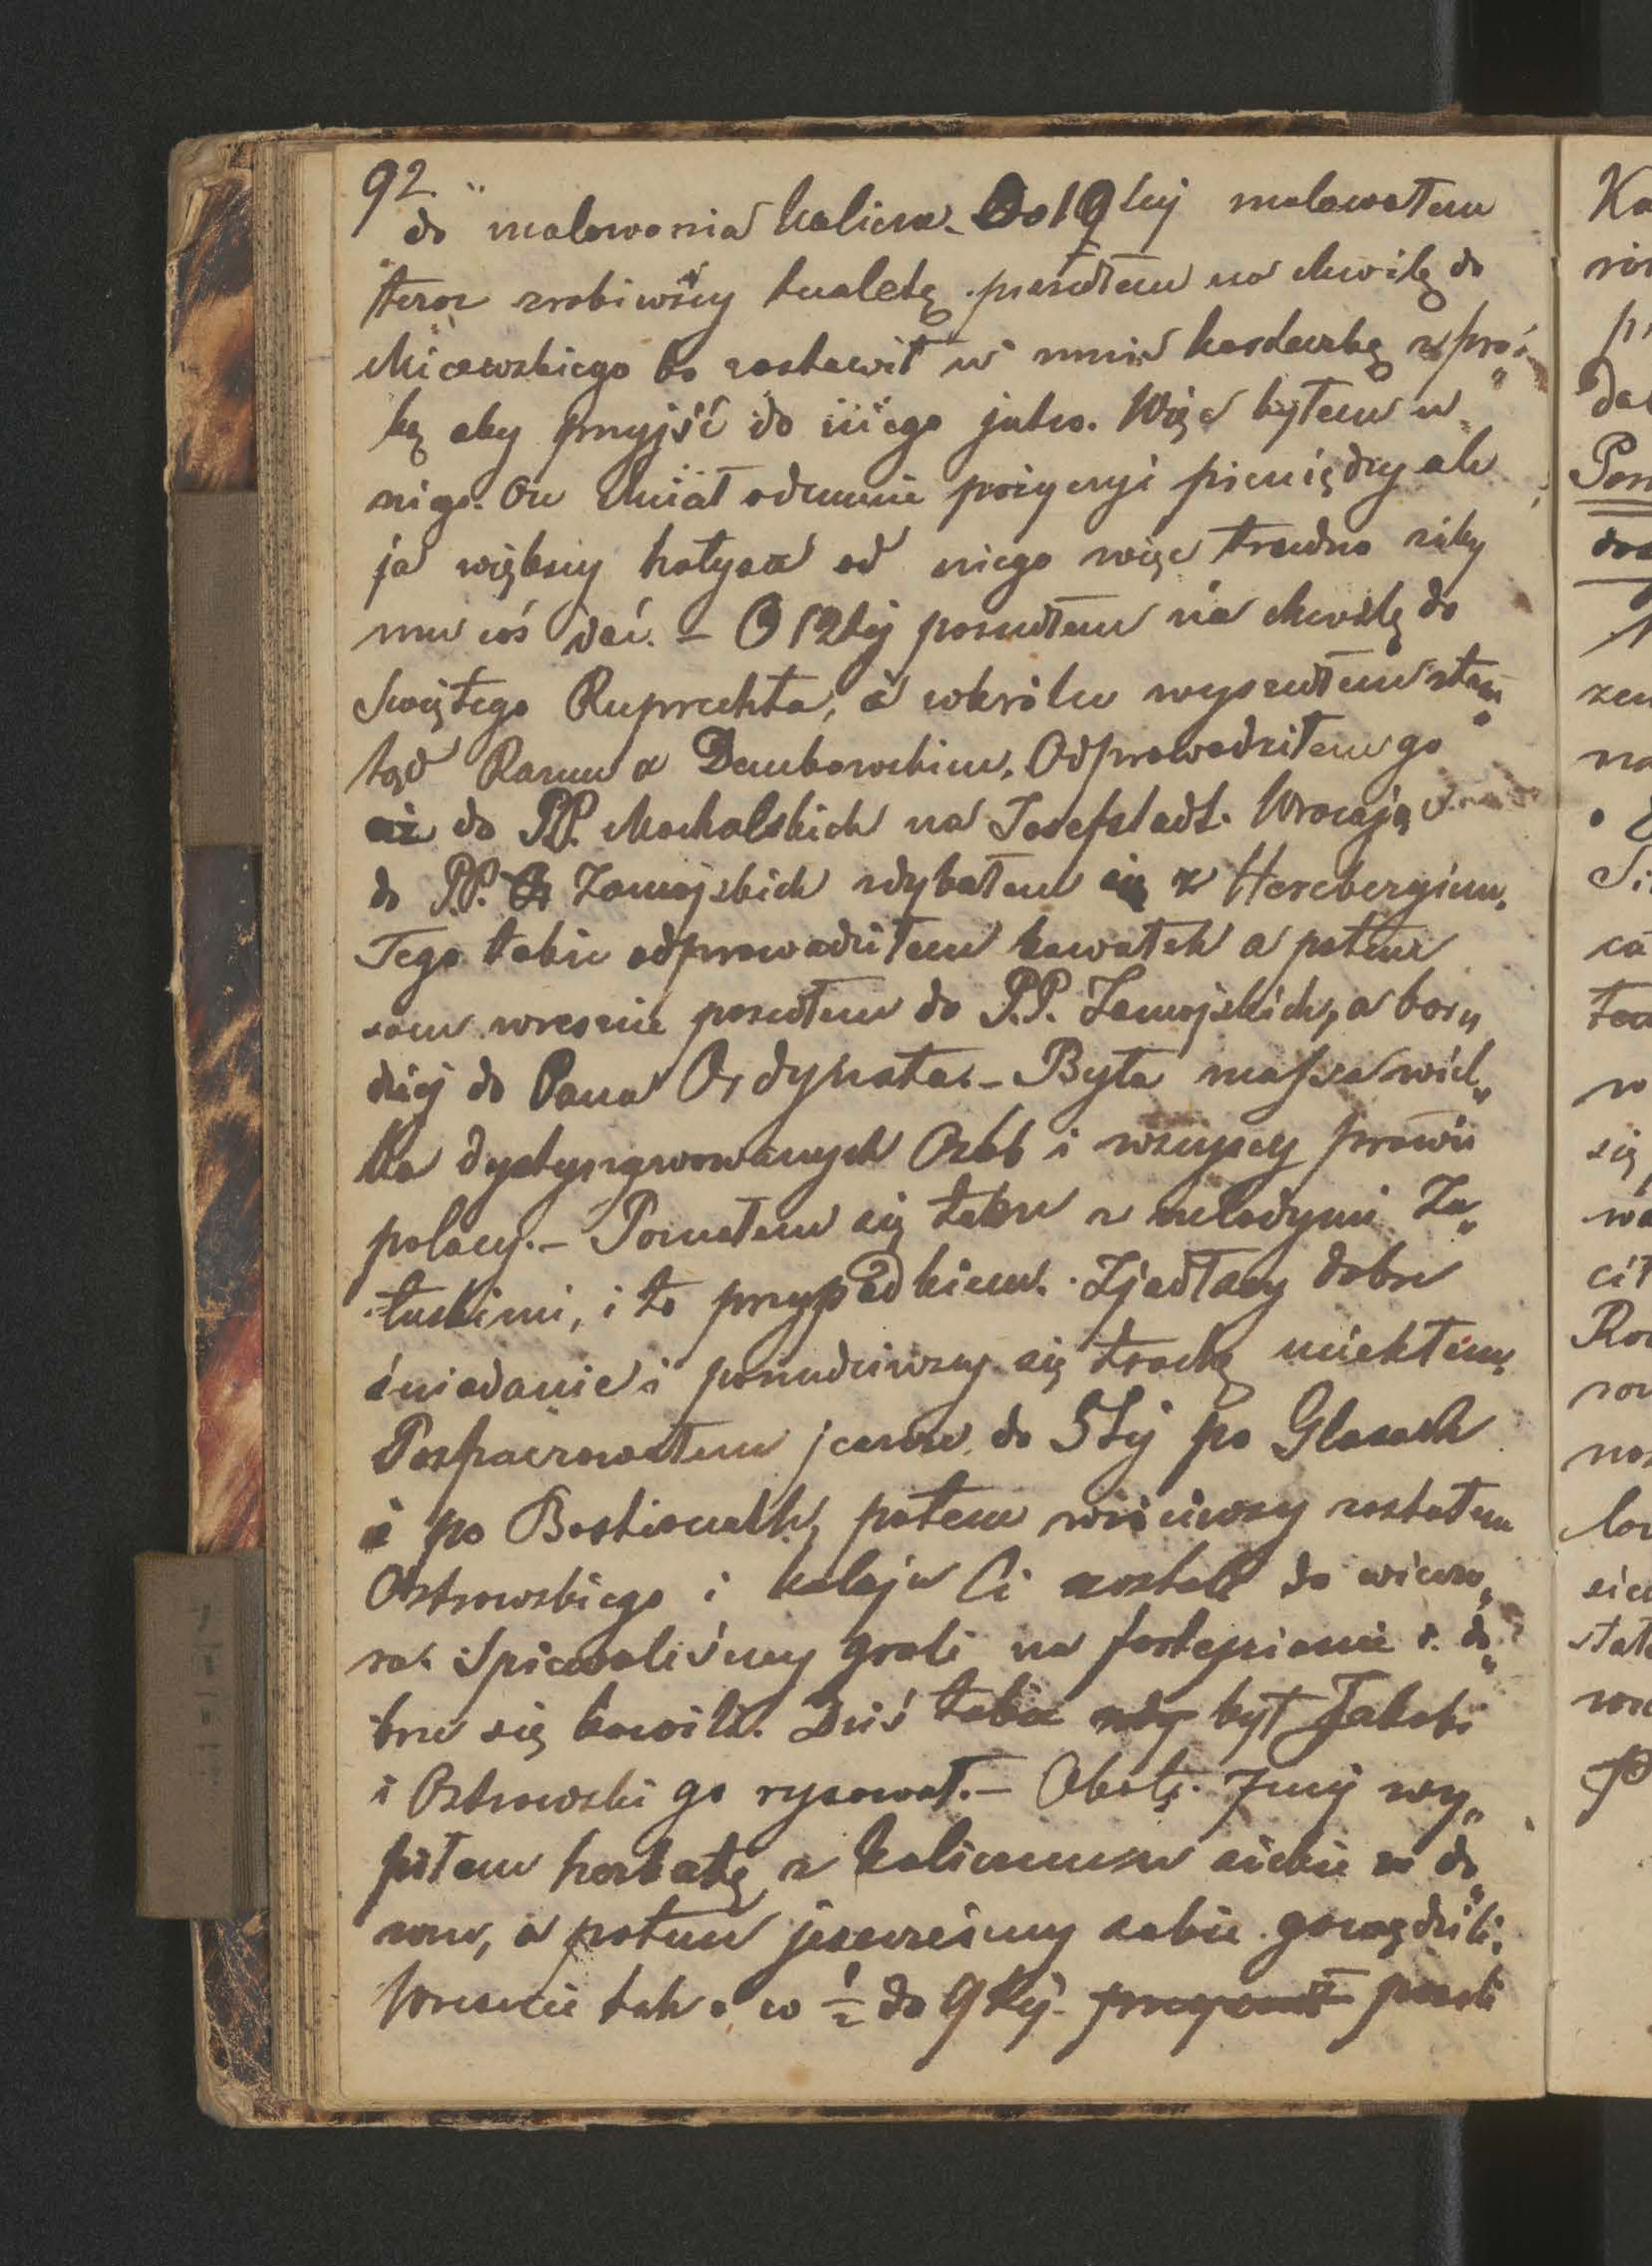 92.
do malowania kalicza. Do 12tej malowałem
teraz zrobiwszy tualetę poszedłem na chwilę do
Micewskiego bo zostawił u mnie karteczkę z proś„
bą aby przyjść do niego jutro. Więc byłem u
niego. On chciał odemnie pożyczyć pieniędzy ale
ja większy hołysz od niego więc trudno żeby
mu coś dać. – O 12tej poszedłem na chwilę do
Świętego Ruprechta, a wkrótce wyszedłem stam„
tąd Razem z Dembowskim. Odprowadziłem go
aż do PP. Mochalskich na Josefstadt. Wracając
do P.P. Zamojskich zdybałem się z Hercbergiem.
Tego także odprowadziłem kawałek a potem
sam wreszcie poszedłem do P.P. Zamojskich, a bar„
dziej do Pana Ordynata. – Była massa wiel„
ka dystyngwowanych Osób i wszyscy prawie
polacy. – Poznałem się także z młodymi Za„
łuskimi, i to przypadkiem. Zjadłszy dobre
śniadanie i ponudziwszy się trochę uciekłem.
Poszpacerowałem jeszcze do 5tej po Glasach
i po Bastionach, potem wróciwszy zastałem
Ostrowskiego i koleje Ci zostali do wieczo„
ra. Śpiewaliśmy grali na fortepianie i do„
brze się bawili. Dziś także był Jakobi
i Ostrowski go rysował. – Około 7mej wy„
piłem herbatę z Kaliczem u siebie w do„
mu, a potem jeszcześmy sobie gawędzili.
Wreszcie tak o w ½ do 9tej poszli